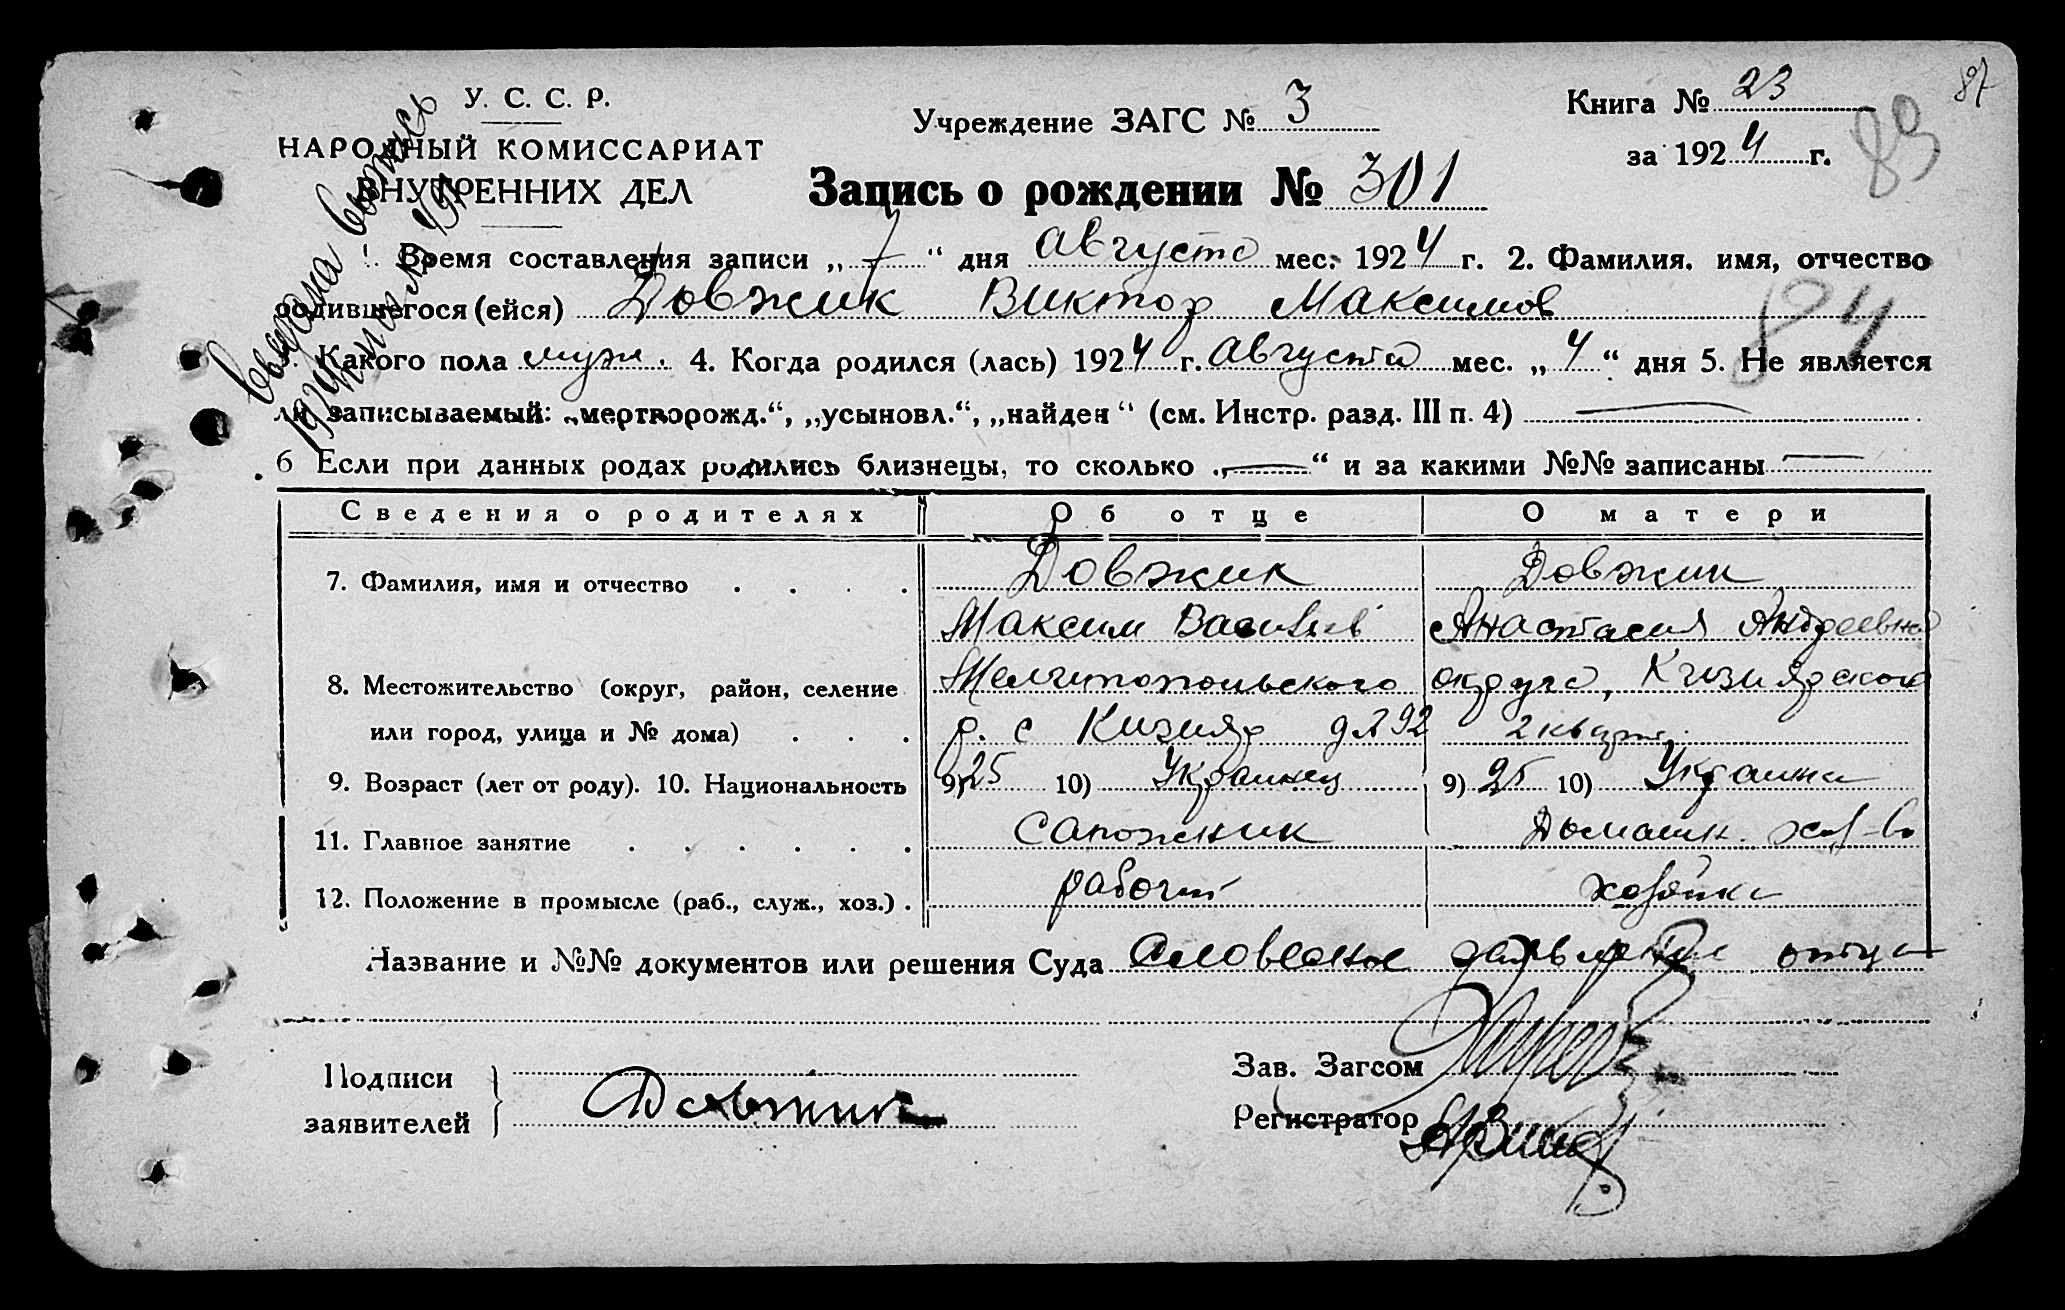 У. С. С. Р.
НАРОДНЫЙ КОМИССАРИАТ
ВНУТРЕННИХ ДЕЛ
Выдана выпись
Учреждение ЗАГС № 3
Книга № 23
за 1924 г.
87
83
Запись о рождении № 301
1. Время составления записи „ 7 “ дня августа мес. 1924 г. 2. Фамилия, имя, отчество
родившегося (ейся) Довжик Виктор Максимов
84
Какого пола муж. 4. Когда родился (лась) 1924 г. августа мес. „ 4 “ дня 5. Не является
ли записываемый: „мертворожд.“, „усыновл.“, „найден“ (см. Инстр. разд. III п. 4) —
6 Если при данных родах родились близнецы, то сколько „ — “ и за какими №№ записаны —
Сведения о родителях Об отце О матери
7. Фамилия, имя и отчество . . . . Довжик Довжик
Максим Васильев Анастасия Андреевна
8. Местожительство (округ, район, селение Мелитопольского округа, Кизиярского
или город, улица и № дома) . . . р. с Кизияр д № 92 2 кварт.
9. Возраст (лет от роду). 10. Национальность 9) 25 10) Украинец 9) 25 10) Украинка
11. Главное занятие . . . . . . Сапожник Домашн. хоз-во
12. Положение в промысле (раб., служ., хоз.) . рабочий хозяйка
Название и №№ документов или решения Суда Словесное заявление отца
Подписи
заявителей } Довжик
Зав. Загсом
Регистратор